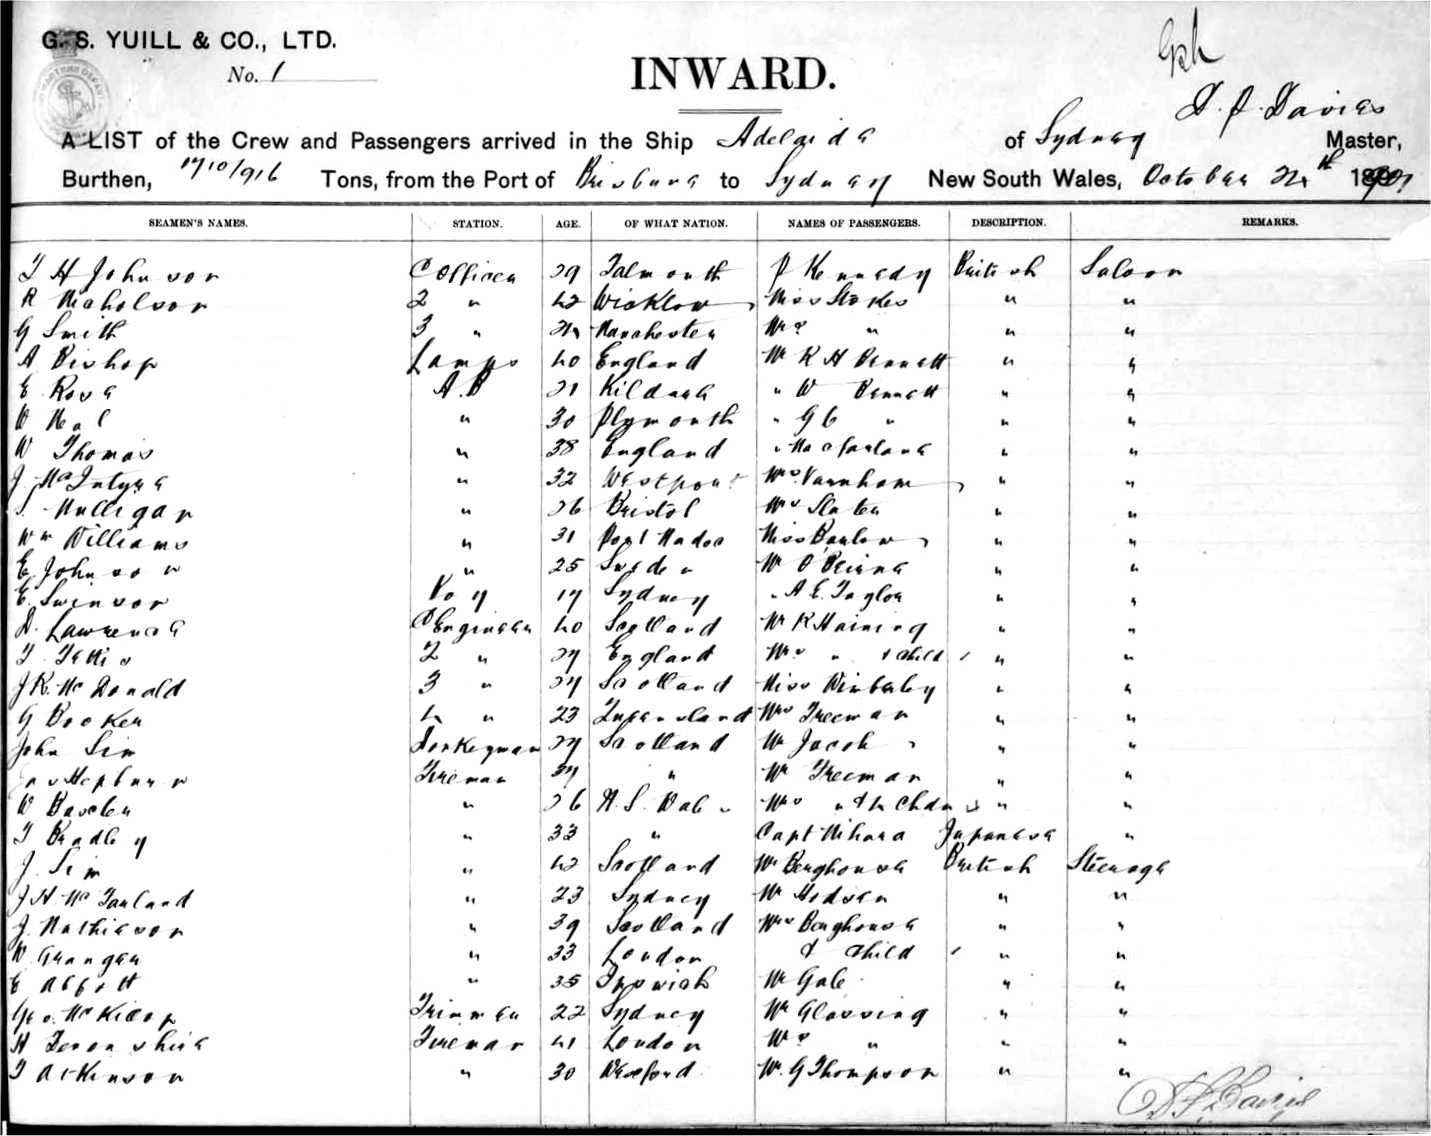 G. S. YUILL & CO., LTD.
No. 1
INWARD.
D. J. Davies
A LIST of the Crew and Passengers arrived in the Ship Adelaide of Sydney Master,
Burthen, 1710/916 Tons, from the Port of Brisbane to Sydney New South Wales, October 24th 1901
SEAMEN'S NAMES. STATION. AGE. OF WHAT NATION. NAMES OF PASSENGERS. DESCRIPTION. REMARKS.
T H Johnson C Officer 29 Falmouth P Kennedy British Saloon
R Nicholson 2 " 42 Wicklow Miss Stokes " "
G Smith 3 " 24 Manchester Mrs " " "
A Bishop Lamps 40 England Mr R H Bennett " "
E Rose A.B 21 Kildare " W Bennett " "
W " 30 Plymouth " G C " " "
W Thomas " 38 England " Macfarlane " "
J. McIntyre " 32 Westport Mrs Varnham " "
Mulligan " 26 Bristol Mrs Slater " "
Wm Williams " 31 Port Madoc Miss Barlow " "
E Johnson " 25 Sweden Mr O'Briene " "
E. Swinson Boy 17 Sydney " A E. Taylor " "
D. Lawrence C Engineer 40 Scotland Mr R Haining " "
T. 2 " 27 England Mrs " & Child " "
J R. McDonald 3 " 27 Scotland Miss Wimberley " "
G Booker 4 " 23 Queensland Mrs Freeman " "
John Sim Donkeyman 27 Scotland Mr Jacob " "
Jas Hepburn Fireman 37 " Mr Freeman " "
W Baxter " 26 N. S. Wales Mrs " & 4 Chdn " "
T Bradley " 33 " Capt Nihara Japanese "
J. Sim " 42 Scotland Mr Berghouse British Steerage
J H. McFarland " 23 Sydney Mr Hodson " "
J. Mathieson " 39 Scotland Mrs Berghouse " "
W. Granger " 33 London & Child " "
E Abbott " 35 Ipswich Mr Gale " "
Geo. McKillop Trimmer 22 Sydney Mr Glossing " "
H Devonshire Fireman 41 London Mrs " " "
T Atkinson " 30 Wexford Mr. G Thompson " "
D J Davies